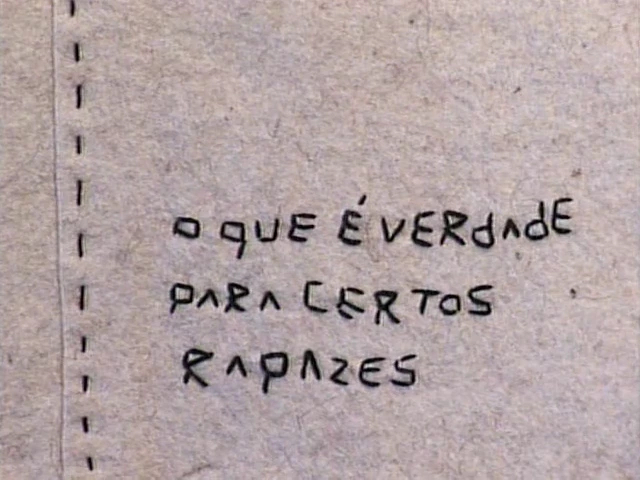 O QUE É VERDADE
PARA CERTOS
RAPAZES